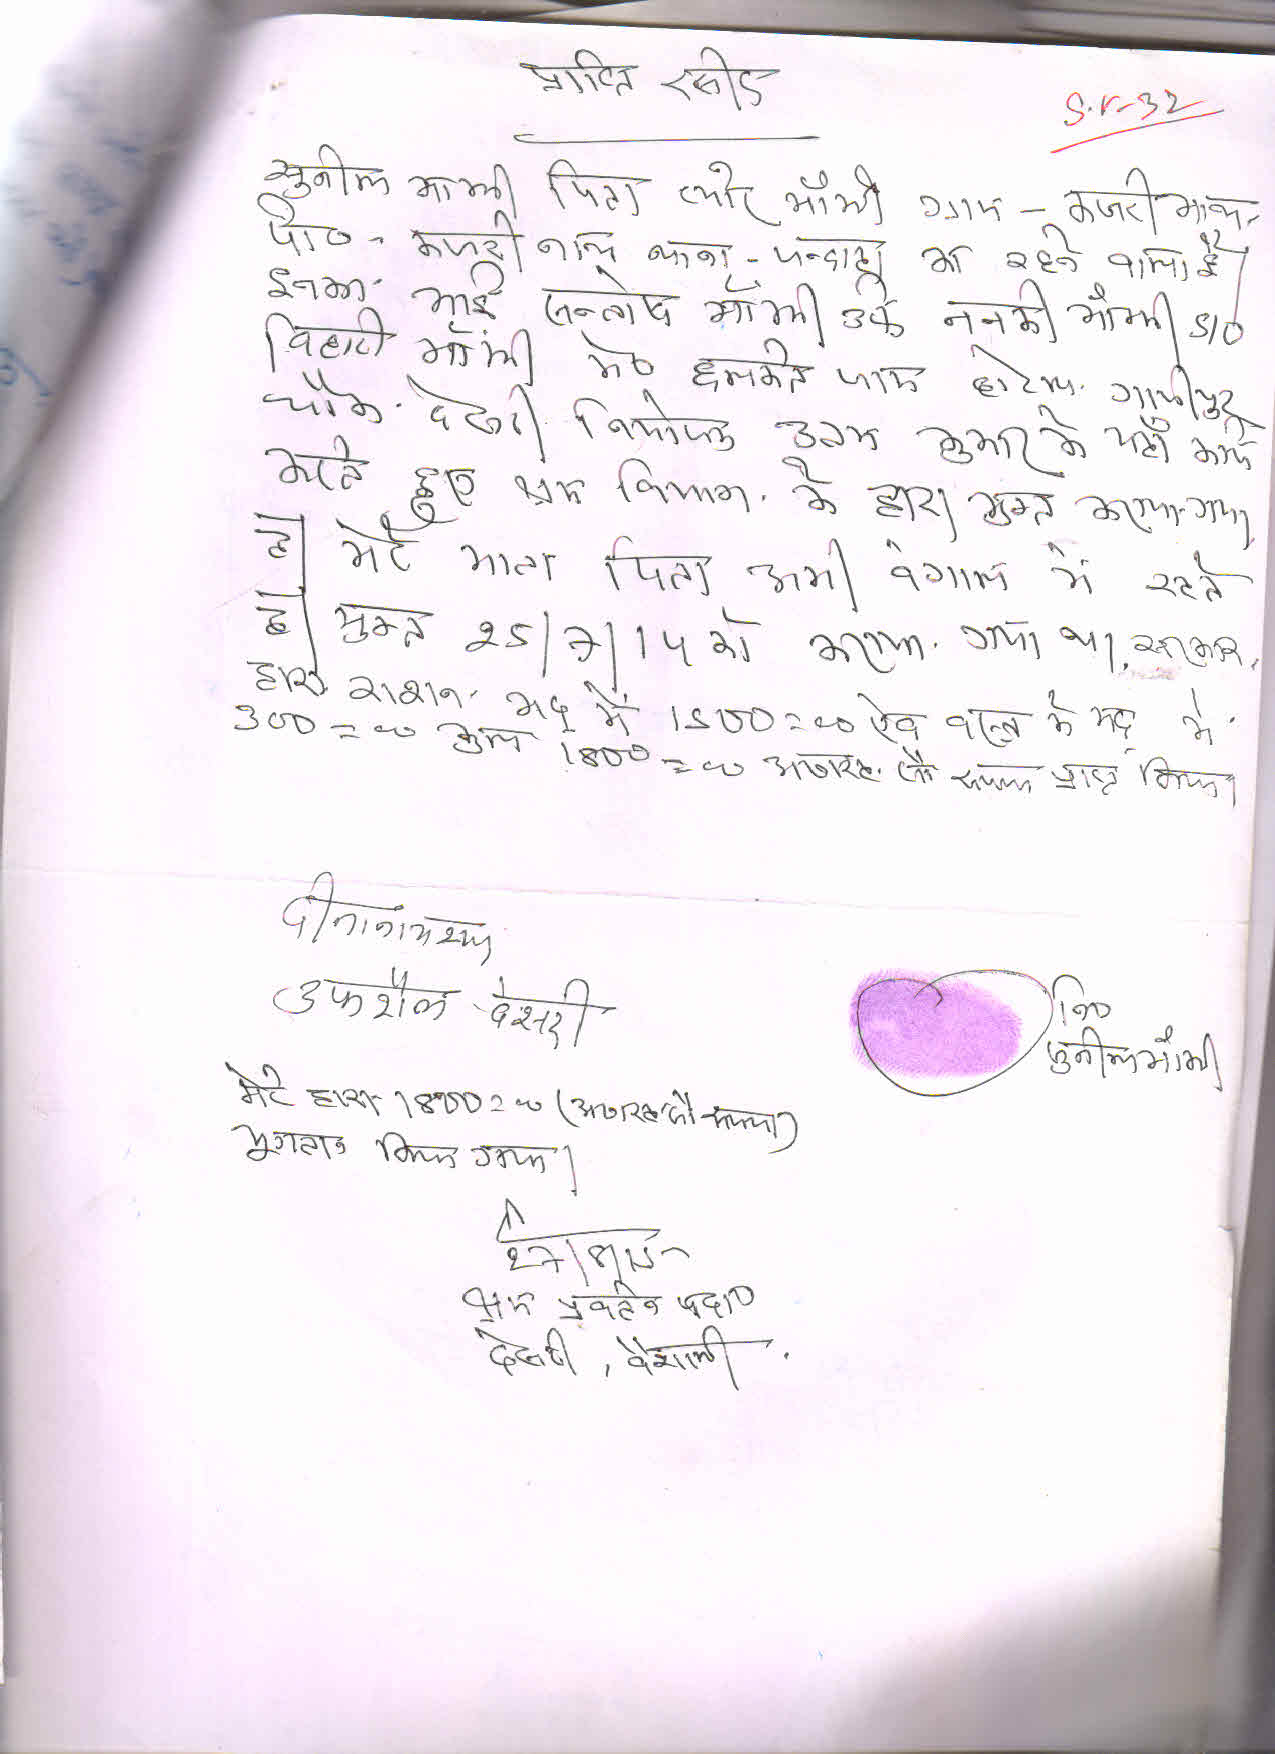 प्राप्ति रसीद
S.r-32
सुनील माझी पिता माँझी ग्राम - कजरी
पो० - कजरी थाना - का रहने वाला है|
इनका भाई सन्तोष माँझी उर्फ ननकी माँझी S/O
विहारी माँझी मे० होटल गाजीपुर
चौक देसरी नियोजक उत्तम कुमार के यहाँ कार्य
करते हुए श्रम विभाग के द्वारा मुक्त कराया गया
है| मेरे माता पिता अभी बंगाल में रहते
है| मुक्त 25/7/14 को कराया गया था, सरकार
द्वारा राशन मद में 1500=00 ऐव वस्त्र के मद में
300=00 कुल 1800=00 अठारह सौ रूपया प्राप्त किया|
उफरौल देसरी
नि०
सुनील माँझी
मेरे द्वारा 1800=00 (अठारह सौ रूपया)
भुगतान किया गया|
श्रम प्रवर्तन पदा०
देसरी, वैशाली.